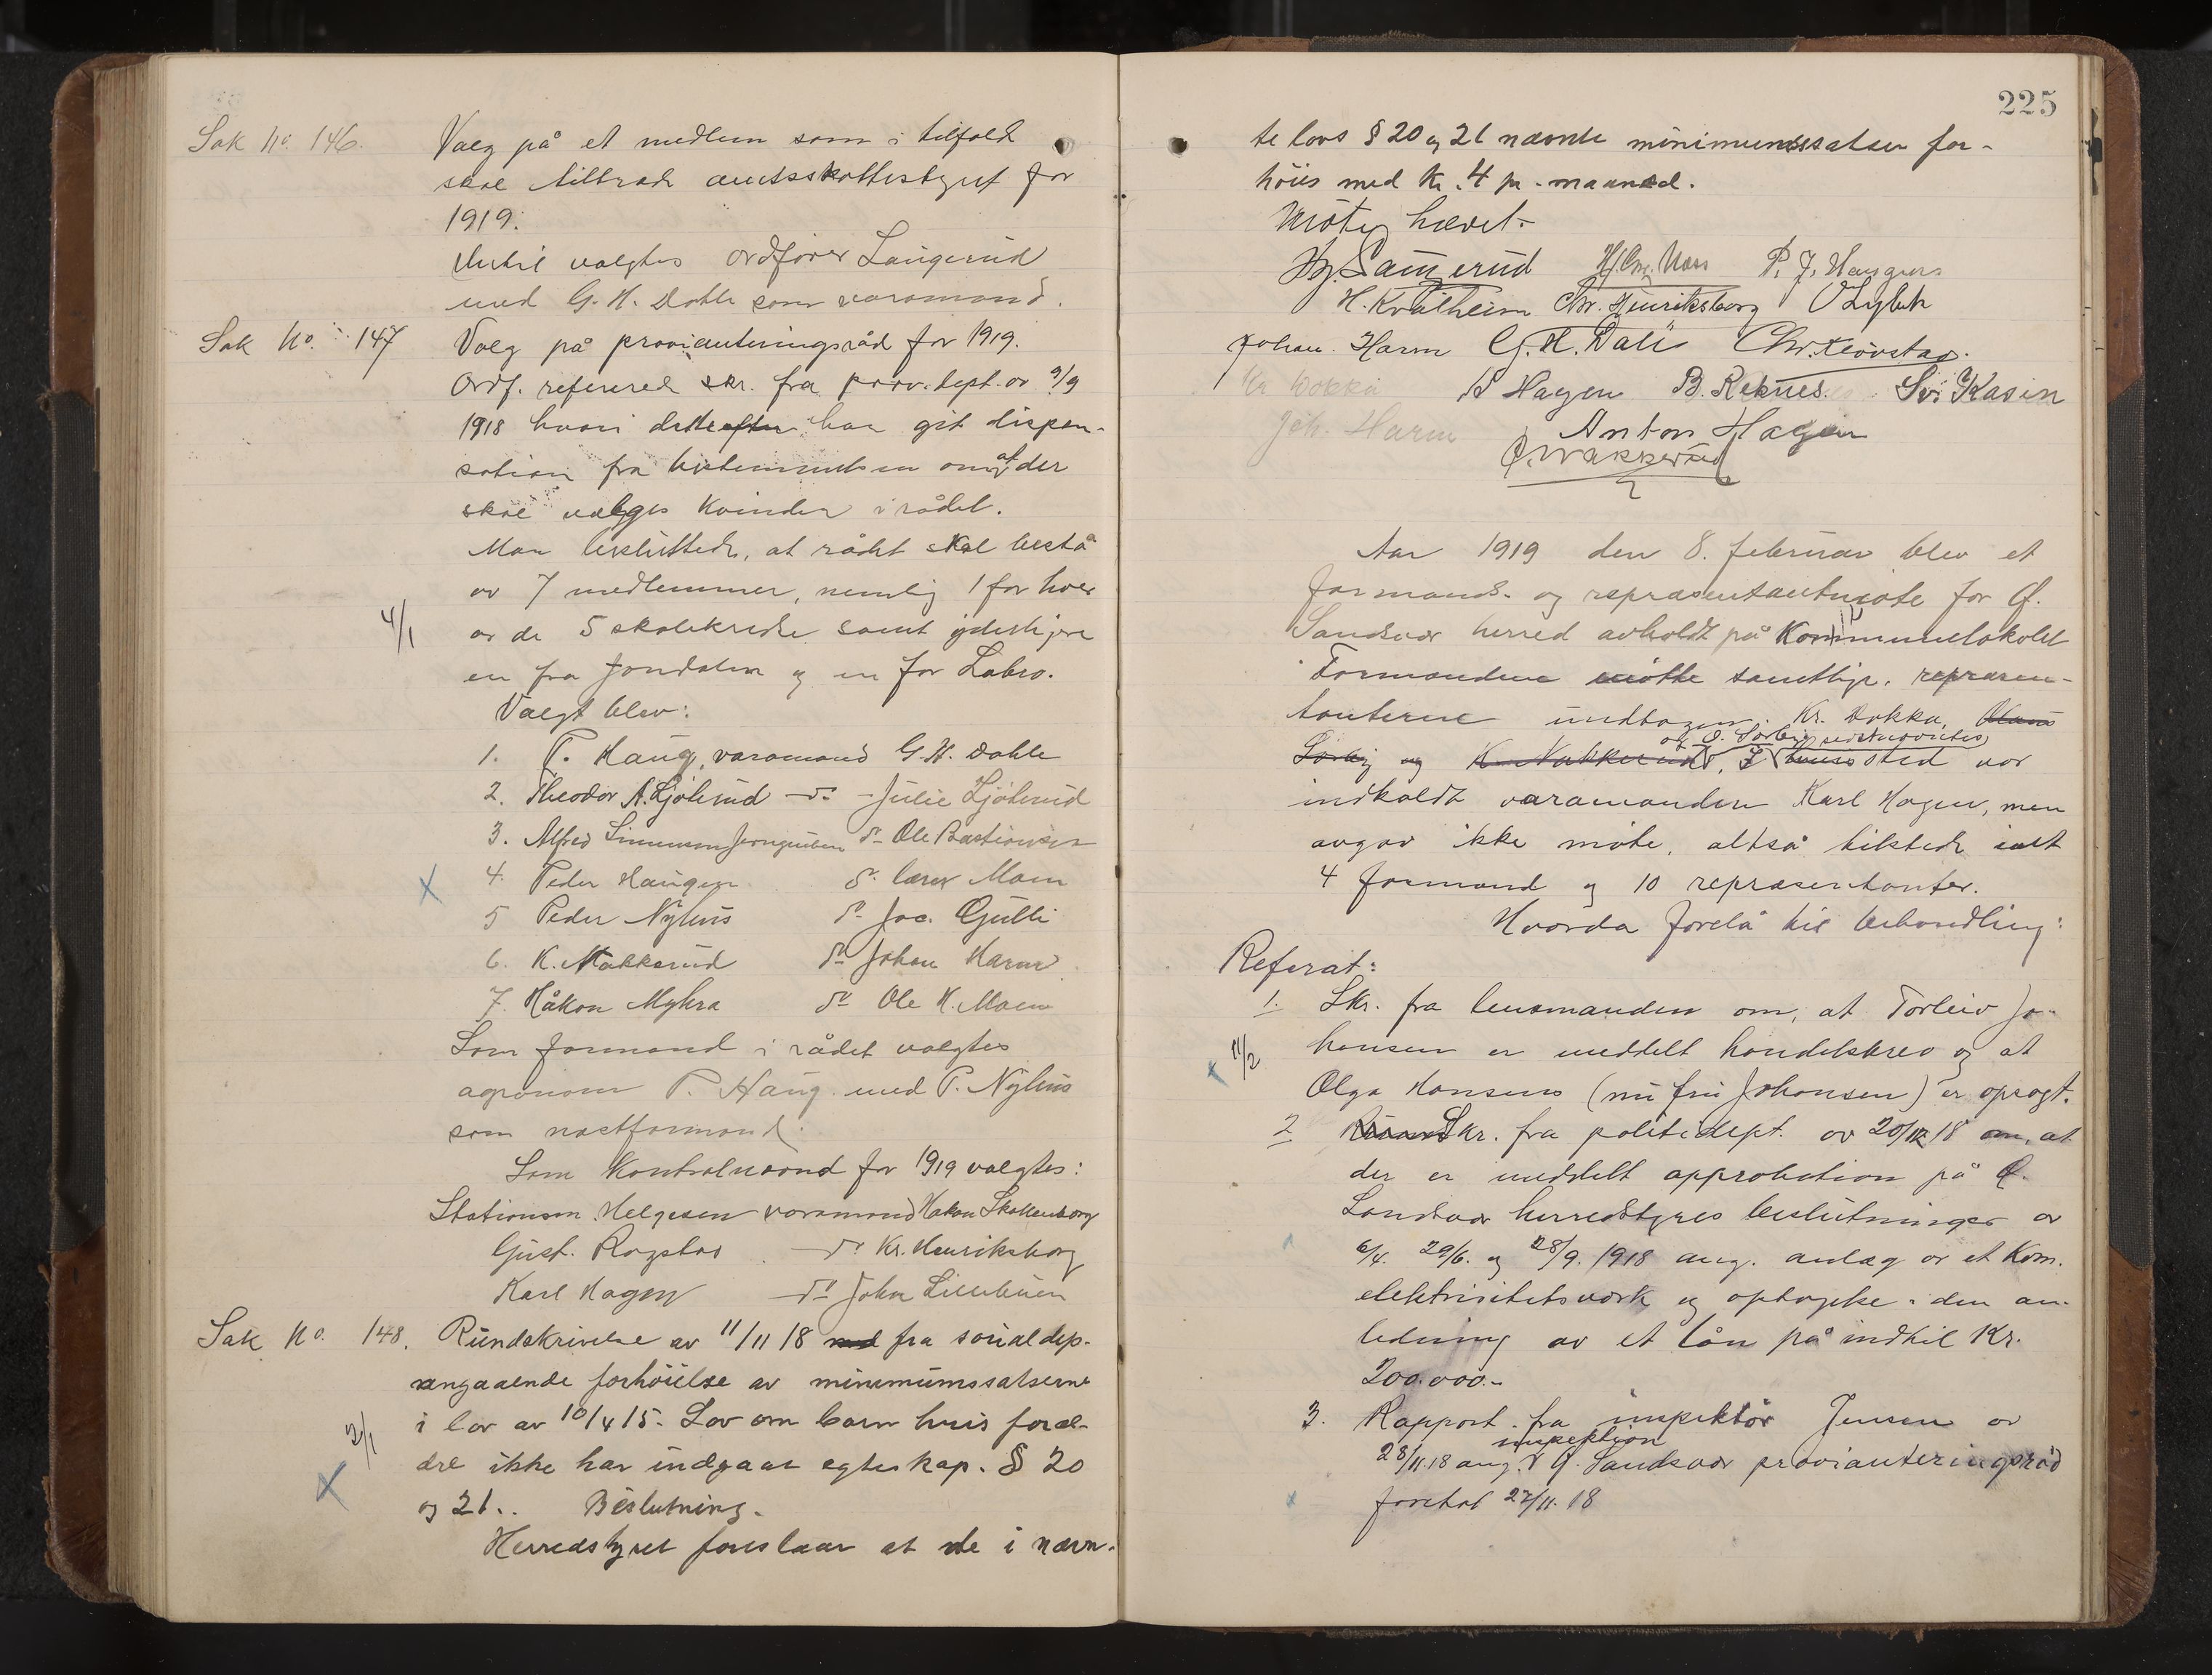 Sak No. 146. Valg på et medlem som i tilfelde
skal tiltræde amtsskattestyret for
1919.
Dertil valgtes ordfører Laugerud
med G. H. Dahle som varamand.
Sak No. 147 Valg på provianteringsråd for 1919.
Ordf. refererede skr. fra prov. dept. av 9/9
1918 hvori dette efter har git dispen-
sation fra bestemmelsen om at der
skal vælges kvinder i rådet.
Man besluttede, at rådet skal bestå
av 7 medlemmer, nemlig 1 for hver
4/1
av de 5 skolekredse samt yderligere
en fra Jondalen og en for Labro.
Valgt blev:
1. T. Haug, varamand G. H. Dahle
2. Theodor A. Ljøterud -d- Julie Ljøterud
3. Alfred Simensen Jerngruben d- Ole Bastiansen
x 4. Peder Haugen d- lærer Moen
5 Peder Nyhus d- Jac. Gulli
6. K. Nakkerud d- Johan Harar
7. Håkon Myhra d- Ole H. Moen
Som formand i rådet valgtes
agronom T. Haug med P. Nyhus
som næstformand.
Som Kontrolnævnd for 1919 valgtes:
Stationsm. Helgesen varamand Hakon Skollenborg
Gust. Rogstad -d- Kr. Henriksborg
Karl Hagen -d- John Lillebuen
Sak No. 148. Rundskrivelse av 11/11 18 med fra socialdep.
angaaende forhøielse av minimumssatserne
i lov av 10/4 15. Lov om barn hvis foræl-
2/1
dre ikke har indgaat egteskap. § 20
x
og 21.. Beslutning.
Herredstyret foreslaar at de i nævn-
225
te lovs § 20 og 21 nævnte minimumssatser for-
høies med kr. 4 pr. maaned.
Møtet hævet.
Hj. Laugerud P. J. Haugens
H. Kvalheim Chr. Henriksborg
Johan Harm G. H. Dahle Chr. Kløvstad.
Kr Dokka K Hagen B. Reknes. Kasin
Joh. Harm Anton Hagen
O. Wakkerud
Aar 1919 den 8. februar blev et
formands- og repræsentantmøte for Ø.
Sandsvær herred avholdt på Kommunelokalet
Formændene møtte samtlige, repræsen-
tanterne undtagen Kr. Dokka,
og O. Sørby sidstnævntes
Sørby og K. Nakkerud, I sted var
indkaldt varamanden Karl Hagen, men
avgav ikke møte, altså tilstede ialt
4 formænd og 10 repræsentanter.
Hvorda forelå til behandling:
Referat:
1. Skr. fra lensmanden om, at Torleiv Jo-
x 11/2
hansen er meddelt handelsbrev og at
Olga Hansens (nu fru Johansen) er opsagt.
2 Skr. fra politidept. av 20/12 18 om, at
der er meddelt approbation på Ø.
Sandsvær herredstyres beslutninger av
6/4. 29/6. og 28/9. 1918 ang. anlæg av et Kom.
elektricitetsverk og optagelse i den an-
ledning av et lån på indtil Kr.
200.000.-
3. Rapport fra inspektør Jensen av
inspektion
28/11.18 ang. Ø. Sandsvær provianteringsråd
x foretat 27/11. 18